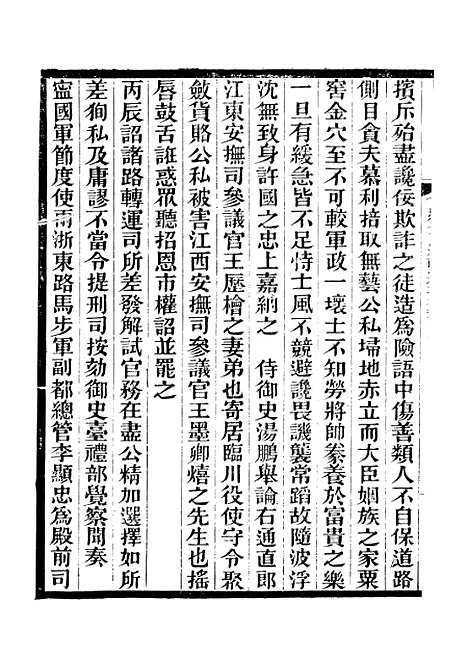 擯斥殆盡讒佞欺詐之徒造為險語中傷善類人不自保道路
側目貪夫慕利掊取無藝公私埽地赤立而大臣姻族之家粟
窖金穴至不可較軍政一壞士不知勞將帥豢養於富貴之樂
一旦有緩急皆不足恃士風不競避讒畏譏襲常蹈故隨波浮
沈無致身許國之忠上嘉納之　侍御史湯鵬舉論右通直郎
江東安撫司參議官王厯檜之妻弟也寄居臨川役使守令聚
斂貨賂公私被害江西安撫司參議官王墨卿熺之先生也搖
脣鼓舌誑惑眾聽招恩市權詔並罷之
丙辰詔諸路轉運司所差發解試官務在盡公精加選擇如所
差狥私及庸謬不當令提刑司按劾御史臺禮部覺察聞奏
寧國軍節度使兩浙東路馬步軍副都總管李顯忠為殿前司